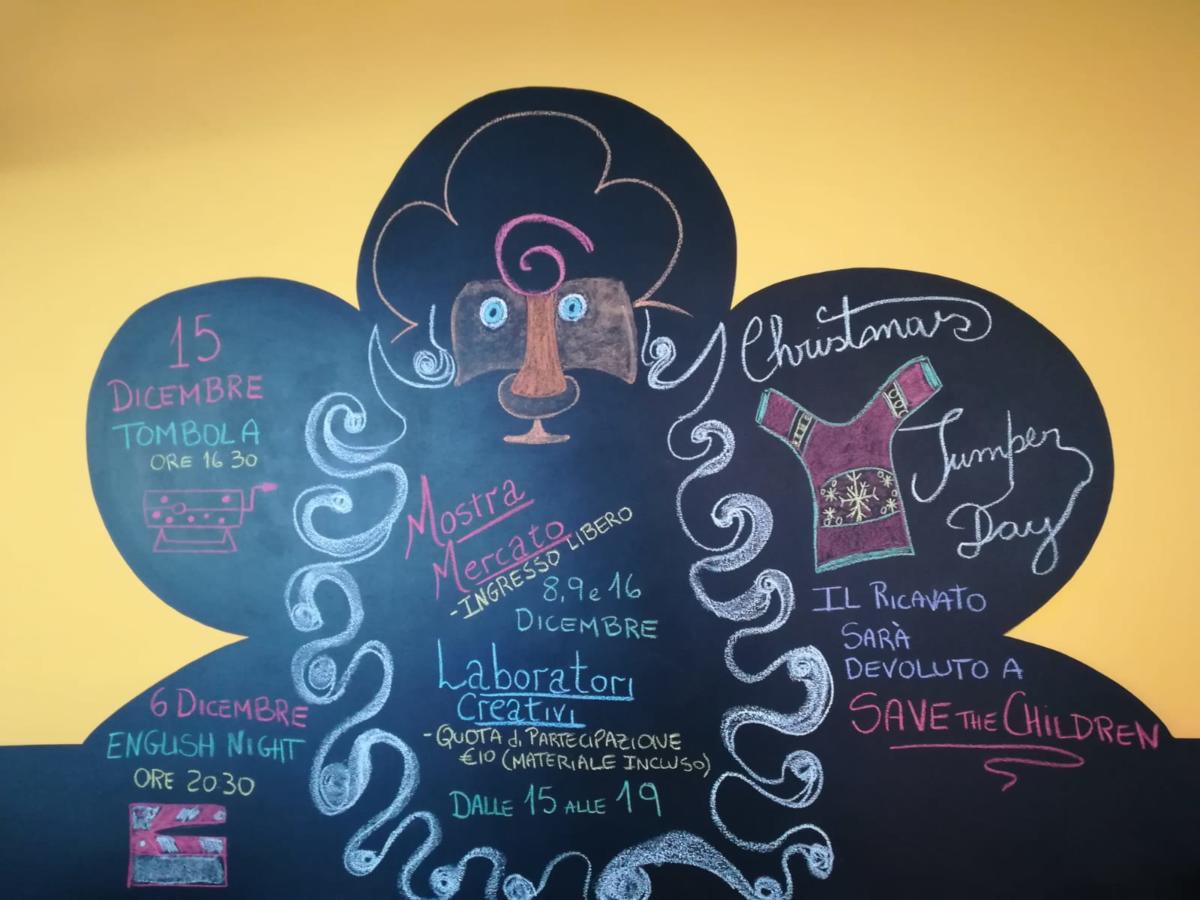 15
DICEMBRE
TOMBOLA
ORE 16 30
6 DICEMBRE
ENGLISH NIGHT
ORE 20.30
Mostra
Mercato
-INGRESSO LIBERO
8,9 e 16
DICEMBRE
Laboratori
Creativi
-QUOTA di PARTECIPAZIONE
€10 (MATERIALE INCLUSO)
DALLE 15 ALLE 19
Christmas
Jumper
Day
IL RICAVATO
SARÀ
DEVOLUTO A
SAVE THE CHILDREN